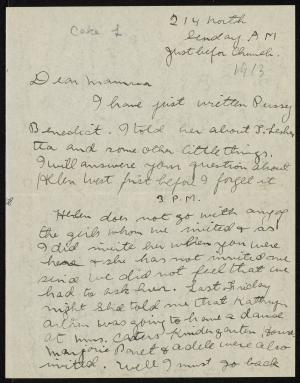 Case 1
214 North
Sunday A M
Just before Church.
1913
Dear Mamma
I have just written Pussy
Benedict. I told her about
tta and some other little things.
I will answere your question about
Helen West first before I forget it
3 P.M.
Helen does not go with any of
the girls whom we invited & as
I did invite her when you were
here & she has not invited me
since we did not feel that we
had to ask her. Last Friday
night she told me that Kathryn
was going to have a dance
at Mrs. Caters Kindergarten house
Marjorie & Adele were also
invited. Well I must go back